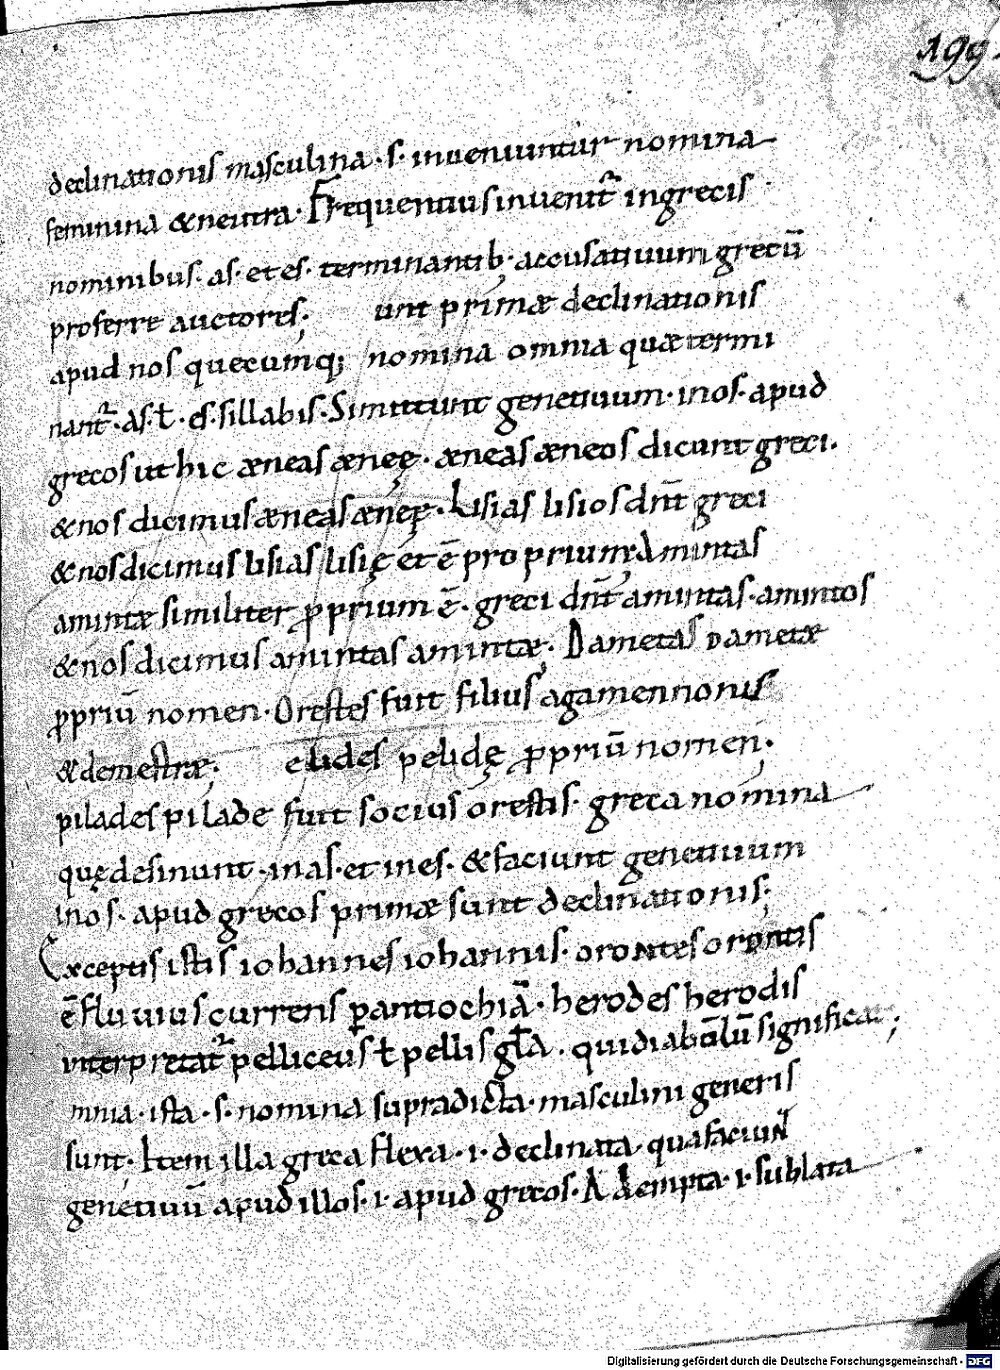 199
declinationis masculina · s · inueniuntur nomina
feminina & neutra · Frequentius inuenit̄ in grecis
nominibus · as · et es · terminantib; accusatiuum grecū
proferre auctores; unt primæ declinationis
apud nos quecumq; nomina omnia quæ termi
nant̄ · as · ł · es · sillabis · Si mittunt genetiuum · in os · apud
grecos ut hic æneas æneę · æneas æneos dicunt greci ·
& nos dicimus æneas æneę · Lisias lisios dn̄t greci
& nos dicimus lisias lisię et ē proprium Amintas
amintæ similiter ꝓprium ē · greci dn̄t amintas · amintos
& nos dicimus amintas amintæ · Dametas dametæ
ꝓpriū nomen · Orestes fuit filius agamennonis
& demestræ; elides pelidę ꝓpriū nomen ·
pilades piladе fuit socius orestis · greca nomina
quę desinunt · in as · et in es · & faciunt genetiuum
in os · apud grecos primæ sunt declinationis;
Exceptis istis iohannes iohannis · orontes orontis
ē fluuius currens ꝑ antiochiā · herodes herodis
interpretat̄ pelliceus ł pellis gła · quidiabołū significa
mnia · ista · s · nomina supradicta · masculini generis
sunt · Item illa greca flexa · i · declinata · qua faciunt
genetiuū apud illos · i · apud grecos · Adempta · i · sublata
Digitalisierung gefördert durch die Deutsche Forschungsgemeinschaft - DFG